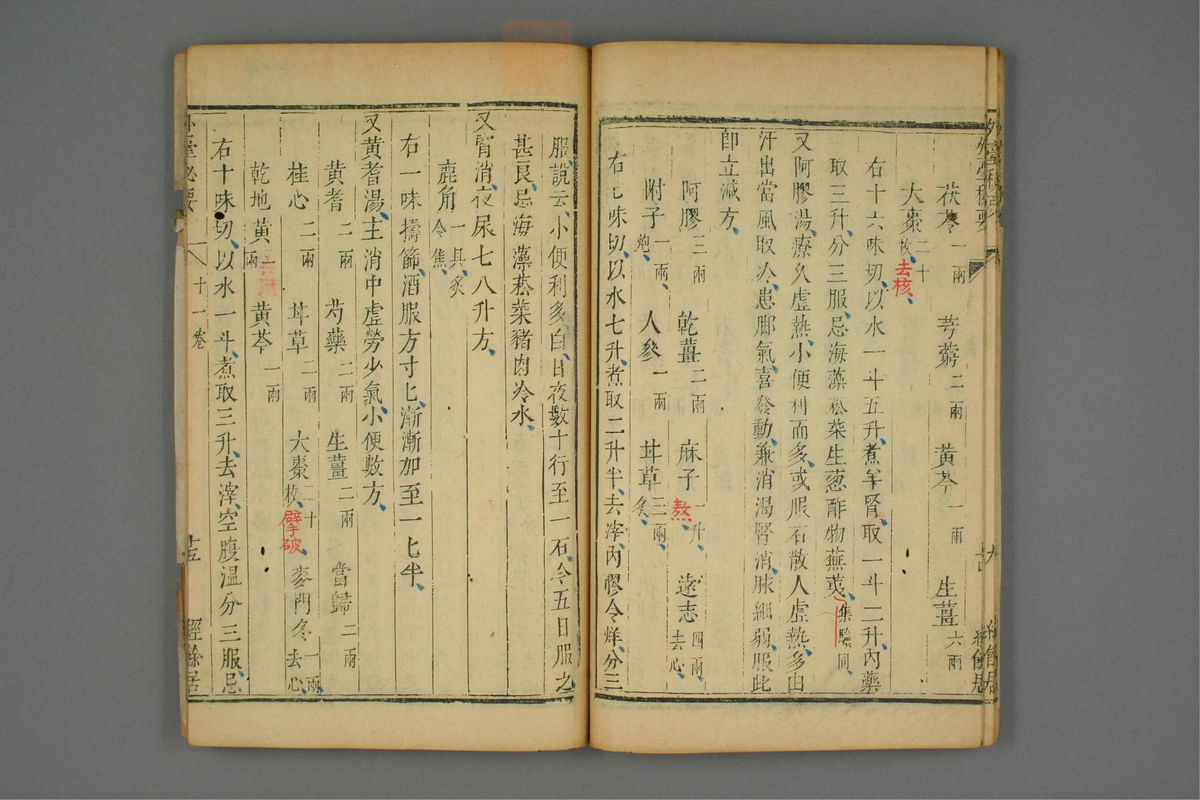 茯苓一兩 芎藭二兩 黃芩一兩 生薑六兩
大棗二十枚去核
右十六味切以水一斗五升煮羊腎取一斗二升內藥
取三升分三服忌海藻菘菜生葱酢物蕪荑集驗同
又阿膠湯療久虛熱小便利而多或服石散人虛熱多由
汗出當風取冷患脚氣喜發動兼消渴腎消脉細弱服此
卽立減方
阿膠三兩 乾薑二兩 麻子一升熬 遠志四兩去心
附子一兩炮 人參一兩 甘草三兩炙
右七味切以水七升煮取二升半去滓內膠令烊分三
服說云小便利多白日夜數十行至一石令五日服之
甚良忌海藻菘菜豬肉冷水
又腎消夜尿七八升方
鹿角一具炙令焦
右一味擣篩酒服方寸匕漸漸加至一匕半
又黃耆湯主消中虛勞少氣小便數方
黃耆二兩 芍藥二兩 生薑二兩 當歸二兩
桂心二兩 甘草二兩 大棗二十枚擘破 麥門冬一兩去心
乾地黃一兩 黃芩一兩
右十味切以水一斗煮取三升去滓空腹溫分三服忌
外臺祕要 十一卷 十五 經餘居